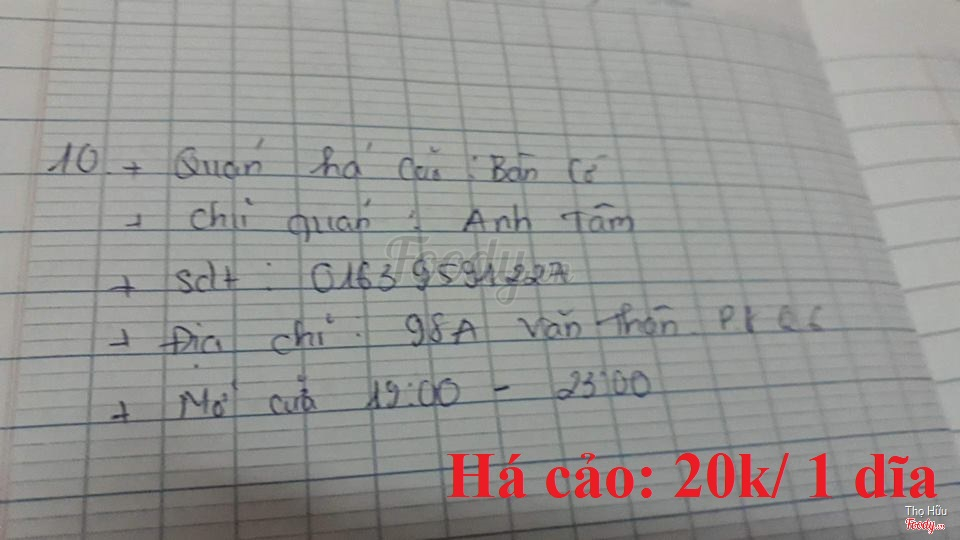 10. + Quán há cảo : Bàn Cờ
+ Chủ quán : Anh Tâm
+ sdt :
+ Địa chỉ : 98A Văn Thân P8 Q6
+ Mở cửa 19:00 - 23:00
Há cảo: 20k/ 1 dĩa
Thọ Hữu
Foody.vn